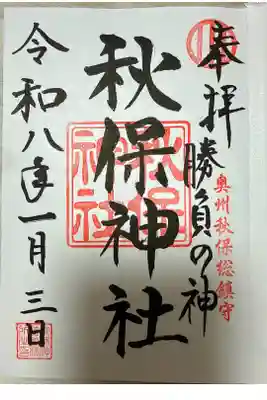 奉拝
奥州秋保総鎮守
勝負の神
秋保神社
秋保神社
令和八年一月三日